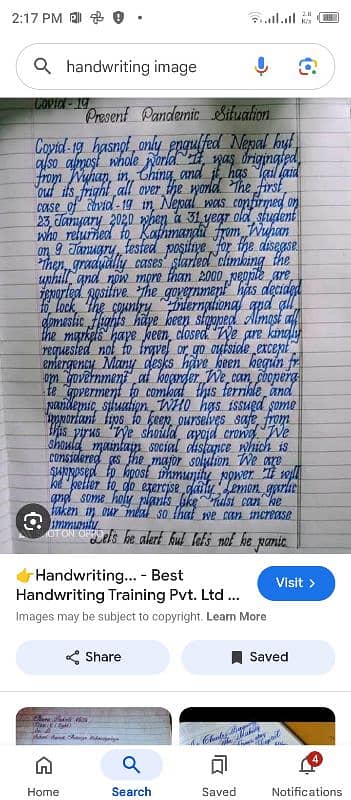 2:17 PM
2.8 K/s
handwriting image
Covid-19
Present Pandemic Situation
Covid-19 hasnot only engulfed Nepal but
also almost whole world. It was originated
from Wuhan in China and it has laid
out its fright all over the world. The first
case of Covid-19 in Nepal was confirmed on
23 January 2020 when a 31 year old student
who returned to Kathmandu from Wuhan
on 9 January tested positive for the disease.
Then gradually cases started climbing the
uphill and now more than 2000 people are
reported positive. The government has decided
to lock the country International and all
domestic flights have been stopped. Almost all
the markets have been closed. We are kindly
requested not to travel or go outside except
emergency Many desks have been begun fr
om government at boarder. We can coopera-
te goverment to combat this terrible and
pandemic situation. WHO has issued some
important tips to keep ourselves safe from
this virus We should avoid crowd. We
should maintain social distance which is
considered as the major solution. We are
supposed to boost immunity power. It will
be better to do exercise daily. Lemon garlic
and some holy plants like Tulsi can be
taken in our meal so that we can increase
immunity
Let's be alert but let's not be panic
SHOT ON OPPO
Handwriting... - Best
Handwriting Training Pvt. Ltd ...
Visit
Images may be subject to copyright. Learn More
Share
Saved
Home
Search
Saved
4
Notifications